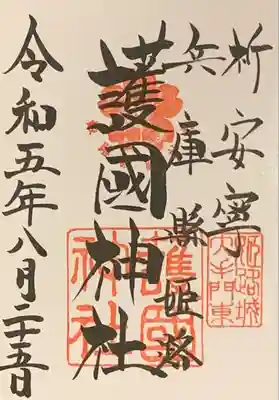 祈安寧
兵庫縣姫路
護國神社
令和五年八月二十五日
姫路城
大手門東
護國
神社